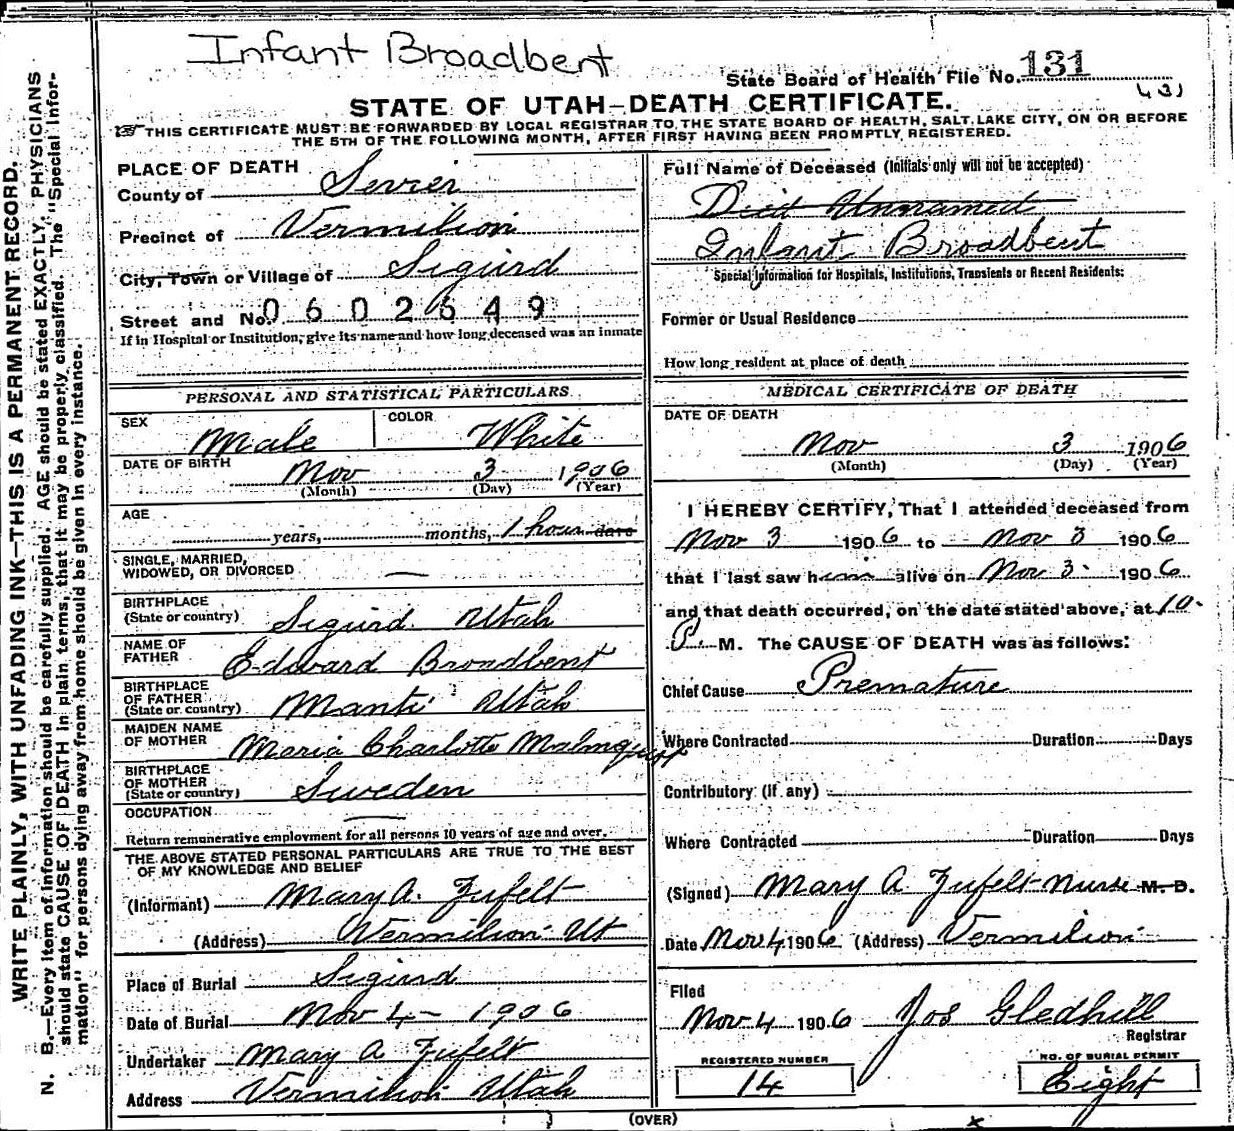 Infant Broadbent
State Board of Health File No. 131
431
STATE OF UTAH—DEATH CERTIFICATE.
THIS CERTIFICATE MUST BE FORWARDED BY LOCAL REGISTRAR TO THE STATE BOARD OF HEALTH, SALT LAKE CITY, ON OR BEFORE
THE 5TH OF THE FOLLOWING MONTH, AFTER FIRST HAVING BEEN PROMPTLY REGISTERED.
WRITE PLAINLY, WITH UNFADING INK—THIS IS A PERMANENT RECORD.
N. B.—Every item of information should be carefully supplied. AGE should be stated EXACTLY. PHYSICIANS
should state CAUSE OF DEATH in plain terms, that it may be properly classified. The "Special Infor-
mation" for persons dying away from home should be given in every instance.
PLACE OF DEATH
County of Sevier
Precinct of Vermilion
City, Town or Village of Sigurd
Street and No. 0602649
If in Hospital or Institution, give its name and how long deceased was an inmate
PERSONAL AND STATISTICAL PARTICULARS
SEX Male COLOR White
DATE OF BIRTH Nov 3 1906
(Month) (Day) (Year)
AGE
years, months, 1 hour days
SINGLE, MARRIED,
WIDOWED, OR DIVORCED —
BIRTHPLACE
(State or country) Sigurd Utah
NAME OF
FATHER Edward Broadbent
BIRTHPLACE
OF FATHER
(State or country) Manti Utah
MAIDEN NAME
OF MOTHER Maria Charlotte Malmquist
BIRTHPLACE
OF MOTHER
(State or country) Sweden
OCCUPATION —
Return remunerative employment for all persons 10 years of age and over.
THE ABOVE STATED PERSONAL PARTICULARS ARE TRUE TO THE BEST
OF MY KNOWLEDGE AND BELIEF
(Informant) Mary A. Zufelt
(Address) Vermilion Ut
Place of Burial Sigurd
Date of Burial Nov 4 - 1906
Undertaker Mary A Zufelt
Address Vermilion Utah
Full Name of Deceased (Initials only will not be accepted)
Died Unnamed
Infant Broadbent
Special Information for Hospitals, Institutions, Transients or Recent Residents:
Former or Usual Residence
How long resident at place of death
MEDICAL CERTIFICATE OF DEATH
DATE OF DEATH
Nov 3 1906
(Month) (Day) (Year)
I HEREBY CERTIFY, That I attended deceased from
Nov 3 1906 to Nov 3 1906
that I last saw him alive on Nov 3 1906
and that death occurred, on the date stated above, at 10
P. M. The CAUSE OF DEATH was as follows:
Chief Cause Premature
Where Contracted Duration Days
Contributory (if any)
Where Contracted Duration Days
(Signed) Mary A Zufelt Nurse M. D.
Date Nov 4 1906 (Address) Vermilion
Filed
Nov 4 1906 Jos Gledhill
Registrar
REGISTERED NUMBER
14
NO. OF BURIAL PERMIT
Eight
(OVER)
x